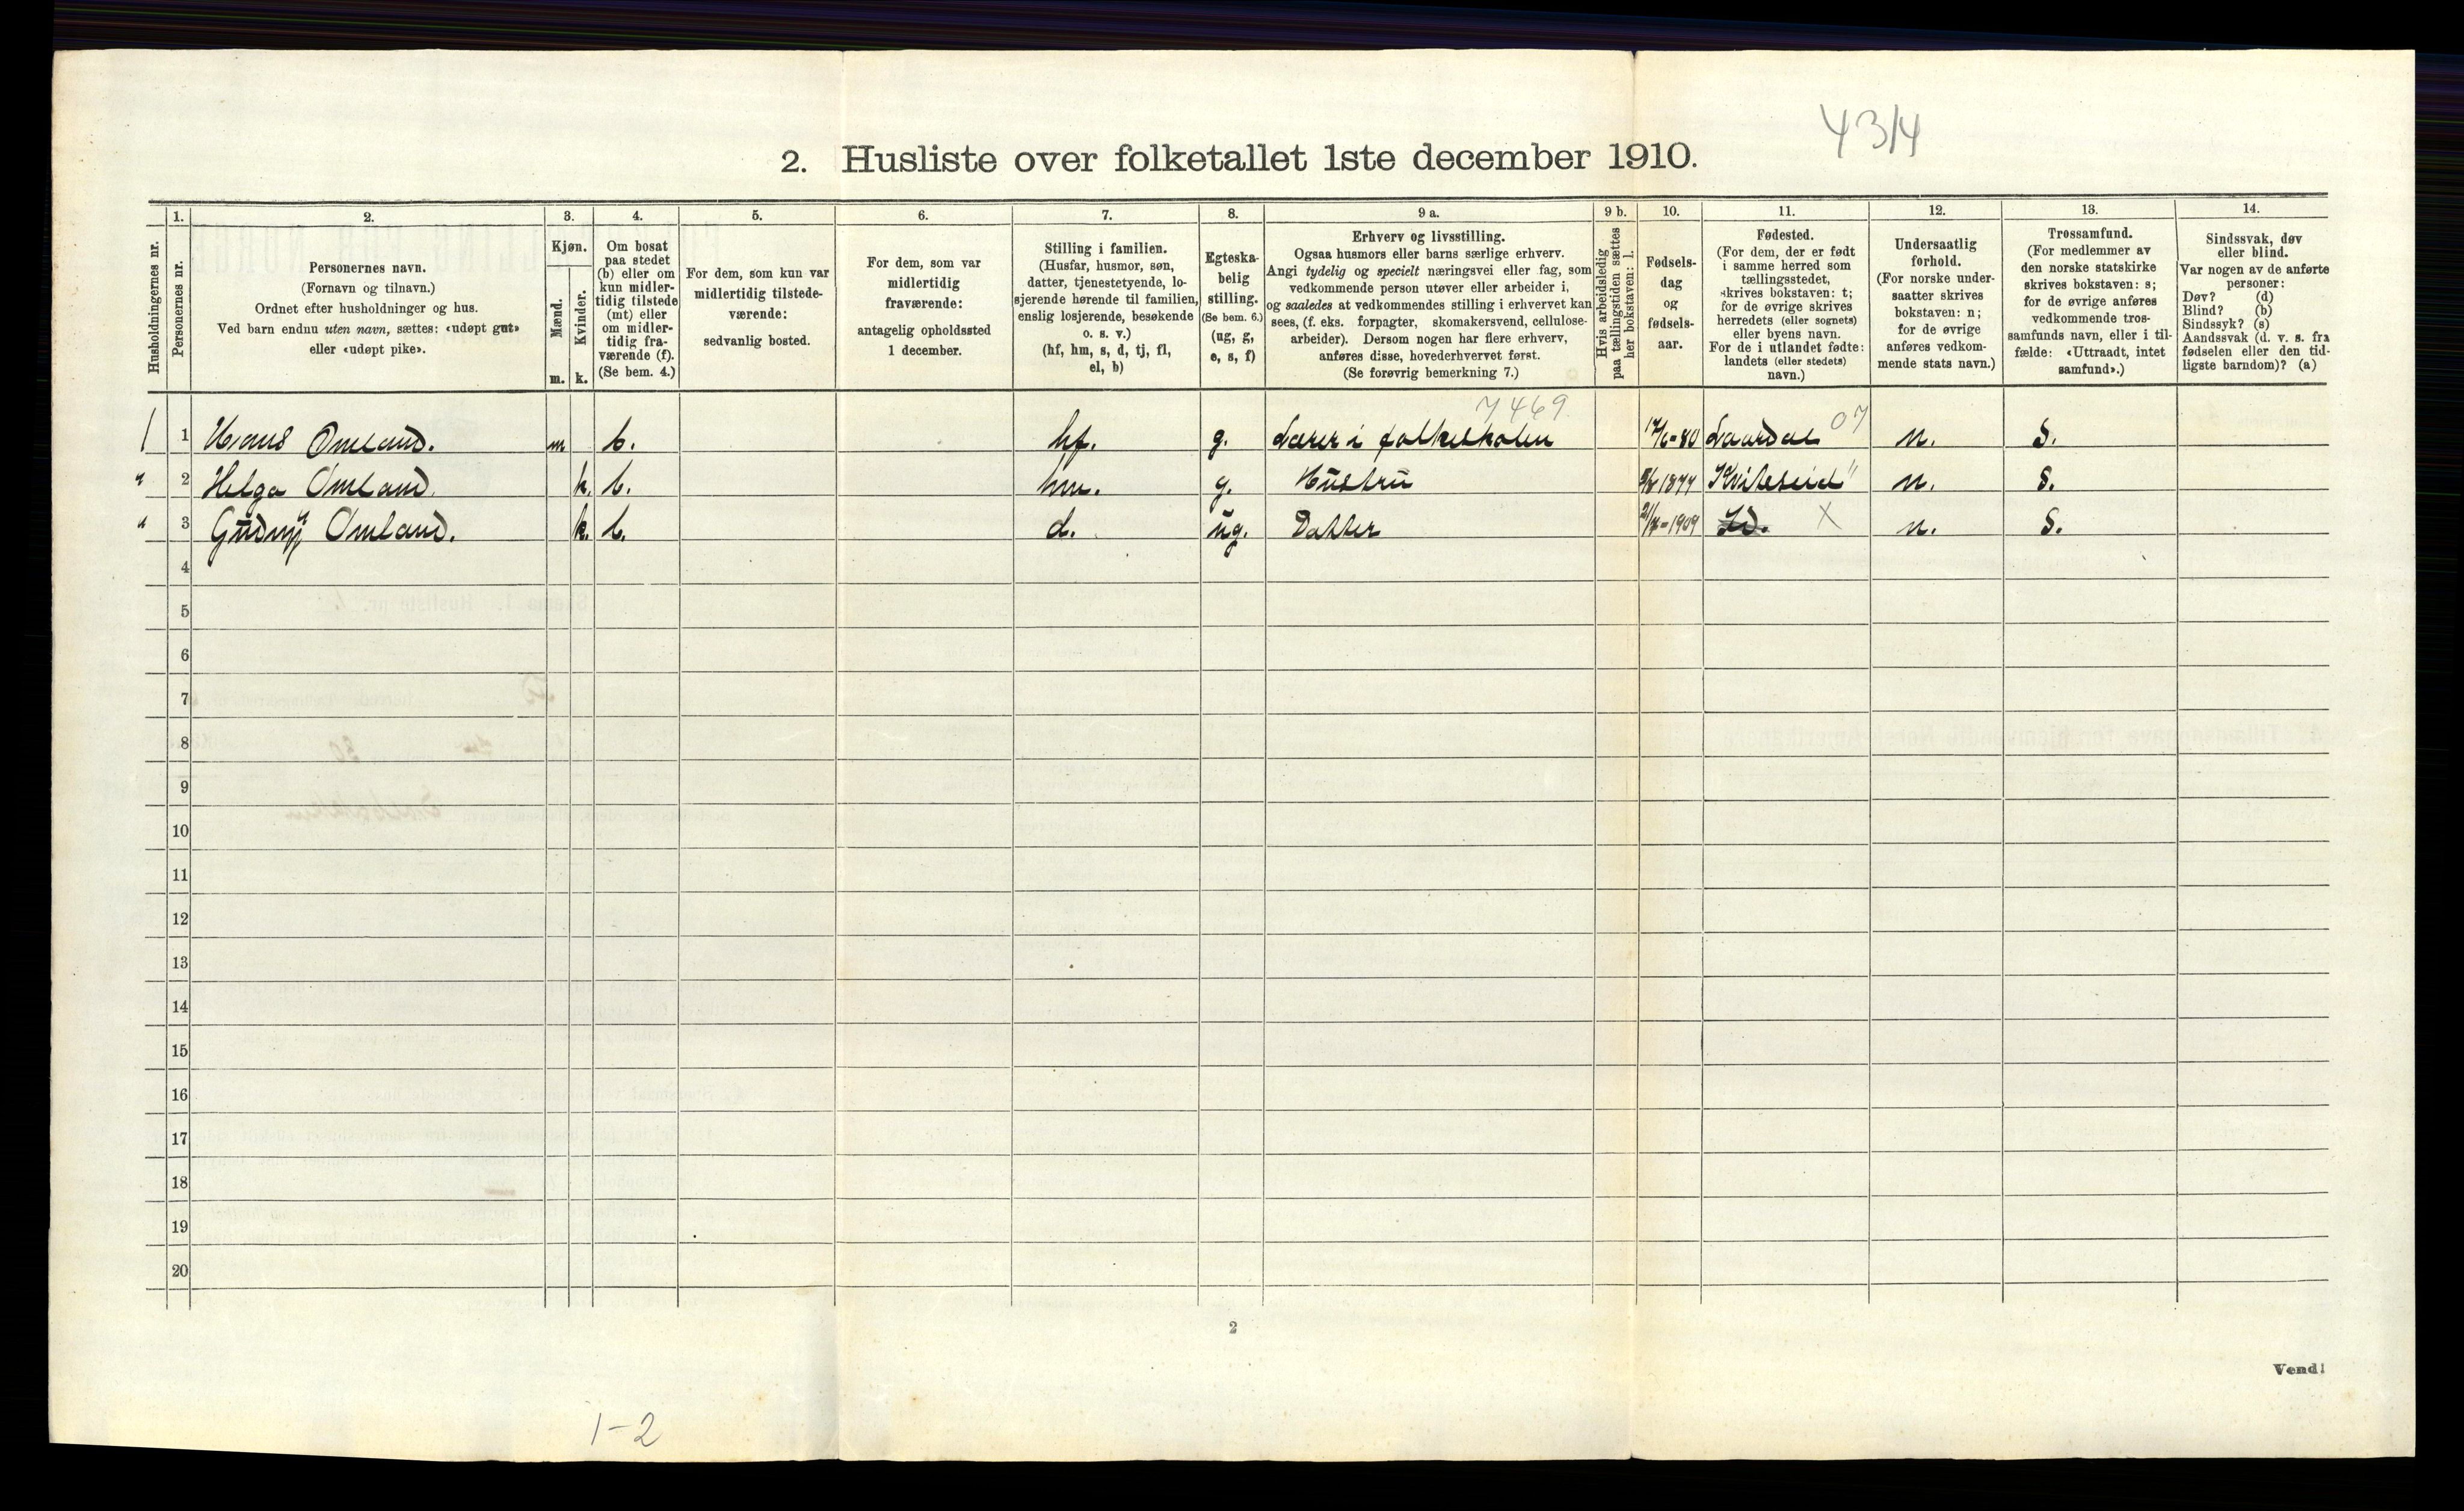 4314
2. Husliste over folketallet 1ste december 1910.
1. 2. 3. 4. 5. 6. 7. 8. 9 a. 9 b. 10. 11. 12. 13. 14.
Husholdningernes nr.
Personernes nr.
Personernes navn.
(Fornavn og tilnavn.)
Ordnet efter husholdninger og hus.
Ved barn endnu uten navn, sættes: «udøpt gut»
eller «udøpt pike».
Kjøn.
Mænd.
Kvinder.
m. k.
Om bosat
paa stedet
(b) eller om
kun midler-
tidig tilstede
(mt) eller
om midler-
tidig fra-
værende (f).
(Se bem. 4.)
For dem, som kun var
midlertidig tilstede-
værende:
sedvanlig bosted.
For dem, som var
midlertidig
fraværende:
antagelig opholdssted
1 december.
Stilling i familien.
(Husfar, husmor, søn,
datter, tjenestetyende, lo-
sjerende hørende til familien,
enslig losjerende, besøkende
o. s. v.)
(hf, hm, s, d, tj, fl,
el, b)
Egteska-
belig
stilling.
(Se bem. 6.)
(ug, g,
e, s, f)
Erhverv og livsstilling.
Ogsaa husmors eller barns særlige erhverv.
Angi tydelig og specielt næringsvei eller fag, som
vedkommende person utøver eller arbeider i,
og saaledes at vedkommendes stilling i erhvervet kan
sees, (f. eks. forpagter, skomakersvend, cellulose-
arbeider). Dersom nogen har flere erhverv,
anføres disse, hovederhvervet først.
(Se forøvrig bemerkning 7.)
Hvis arbeidsledig
paa tællingstiden sættes
her bokstaven: l.
Fødsels-
dag
og
fødsels-
aar.
Fødested.
(For dem, der er født
i samme herred som
tællingsstedet,
skrives bokstaven: t;
for de øvrige skrives
herredets (eller sognets)
eller byens navn.
For de i utlandet fødte:
landets (eller stedets)
navn.)
Undersaatlig
forhold.
(For norske under-
saatter skrives
bokstaven: n;
for de øvrige
anføres vedkom-
mende stats navn.)
Trossamfund.
(For medlemmer av
den norske statskirke
skrives bokstaven: s;
for de øvrige anføres
vedkommende tros-
samfunds navn, eller i til-
fælde: «Uttraadt, intet
samfund».)
Sindssvak, døv
eller blind.
Var nogen av de anførte
personer:
Døv? (d)
Blind? (b)
Sindssyk? (s)
Aandssvak (d. v. s. fra
fødselen eller den tid-
ligste barndom)? (a)
7469
1 1 Hans Omland. m b. hf. g. Lærer i folkeskolen 17/6-80 Laardal 07 n. S.
" 2 Helga Omland. k. b. hm. g. Hustru 1877 Kviteseid " n. S.
" 3 Gudny Omland. k. b. d. ug. Datter 1909 Id. X n. S.
4
5
6
7
8
9
10
11
12
13
14
15
16
17
18
19
20
2
Vend!
1-2